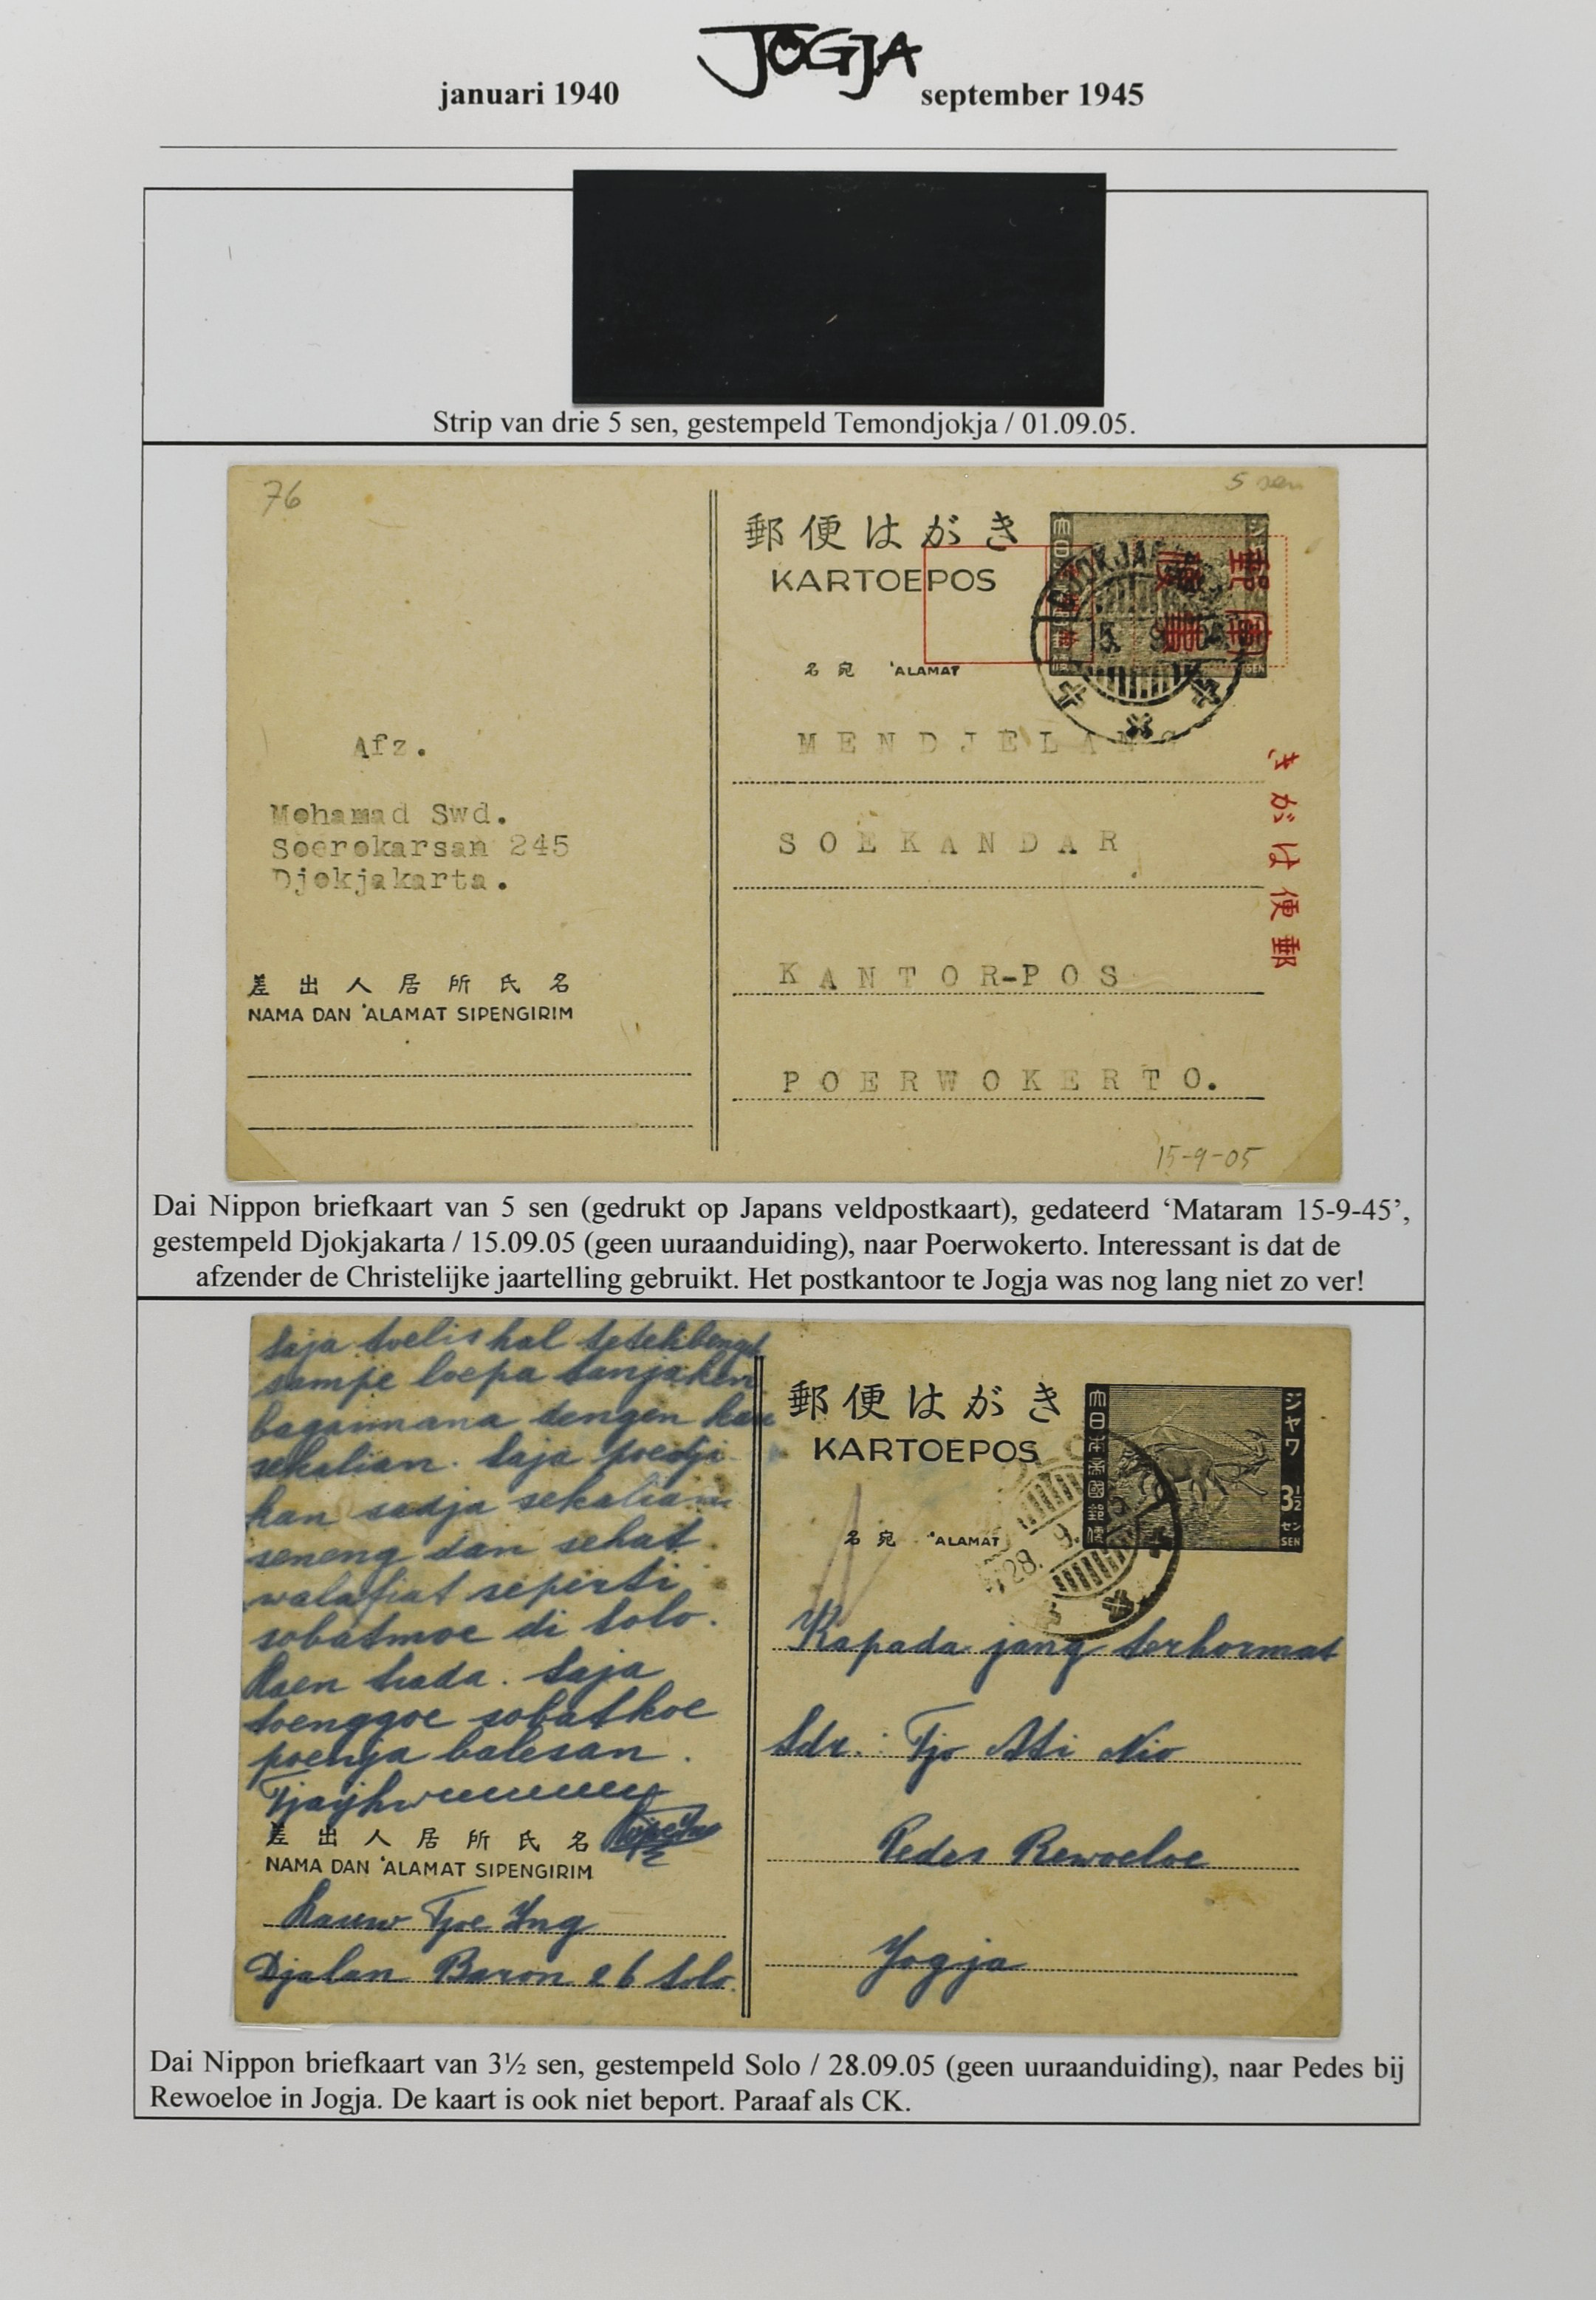 JOGJA
januari 1940
september 1945
Strip van drie 5 sen, gestempeld Temondjokja / 01.09.05.
76
5 sen
郵便はがき
KARTOEPOS
名宛 'ALAMAT
Afz.
Mohamad Swd.
Soerokarsan 245
Djokjakarta.
差出人居所氏名
NAMA DAN 'ALAMAT SIPENGIRIM
MENDJELANG
SOEKANDAR
KANTOR-POS
POERWOKERTO.
郵便はがき
15-9-05
Dai Nippon briefkaart van 5 sen (gedrukt op Japans veldpostkaart), gedateerd ‘Mataram 15-9-45’,
gestempeld Djokjakarta / 15.09.05 (geen uuraanduiding), naar Poerwokerto. Interessant is dat de
afzender de Christelijke jaartelling gebruikt. Het postkantoor te Jogja was nog lang niet zo ver!
saja toelis hal
sampe loepa tanjaken
bagaimana dengen kau
sekalian. Saja poedji
kan sadja sekalian
seneng dan sehat
walafiat seperti
sobatmoe di Solo.
Laen trada. Saja
toenggoe sobatkoe
poenja balesan.
差出人居所氏名
NAMA DAN 'ALAMAT SIPENGIRIM
Kauw Tjoe Ing
Djalan Baron 26 Solo.
郵便はがき
KARTOEPOS
大日本帝國郵便
ジャワ
3½
セン
SEN
28. 9.
名宛 'ALAMAT
Kapada jang terhormat
Sdr. : Tjo Ati Nio
Pedes Rewoeloe
Jogja
Dai Nippon briefkaart van 3½ sen, gestempeld Solo / 28.09.05 (geen uuraanduiding), naar Pedes bij
Rewoeloe in Jogja. De kaart is ook niet beport. Paraaf als CK.